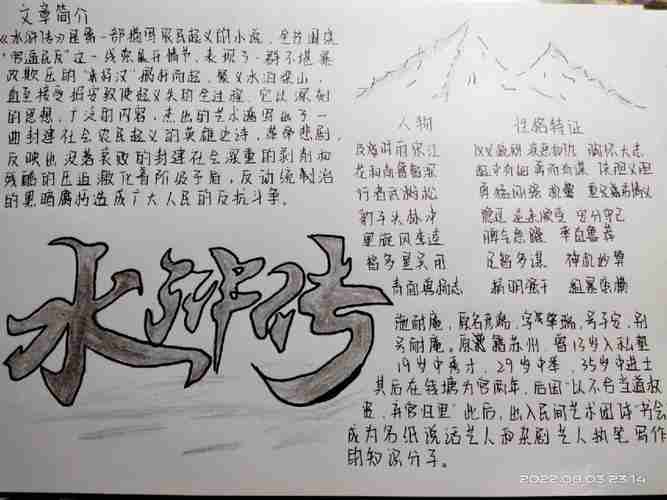 文章简介
《水浒传》是第一部描写农民起义的小说，全书围绕
"官逼民反"这一线索展开情节，表现了一群不堪暴
政欺压的"好汉"揭竿而起，聚义水泊梁山，
直至接受招安致使起义失的全过程。它以深刻
的思想，广泛的内容，杰出的艺术谱写出了一
曲封建社会农民起义的英雄史诗，革命悲剧，
反映出没落衰败的封建社会深重的剥削和
残酷的压迫激化着阶级矛盾，反动统制治
的黑暗腐朽造成广大人民的反抗斗争。
水浒传
人物 性格特征
及时雨宋江
花和尚鲁智深
行者武松
豹子头林冲
黑旋风李逵 脾气急躁
智多星吴用 足智多谋 神机妙算
青面兽杨志 精明强干 粗暴
施耐庵，原名彦端，字肇瑞，号子安，别
号耐庵。原籍苏州，曾13岁入私塾
19岁中秀才，29岁中举，35岁中进士
其后在钱塘为官两年，后因"以不合当道权
贵，弃官归里"此后，出入民间艺术团体"书会
成为名纸说话艺人和杂剧艺人执笔写作
的知识分子。
2022.08.03 23:14